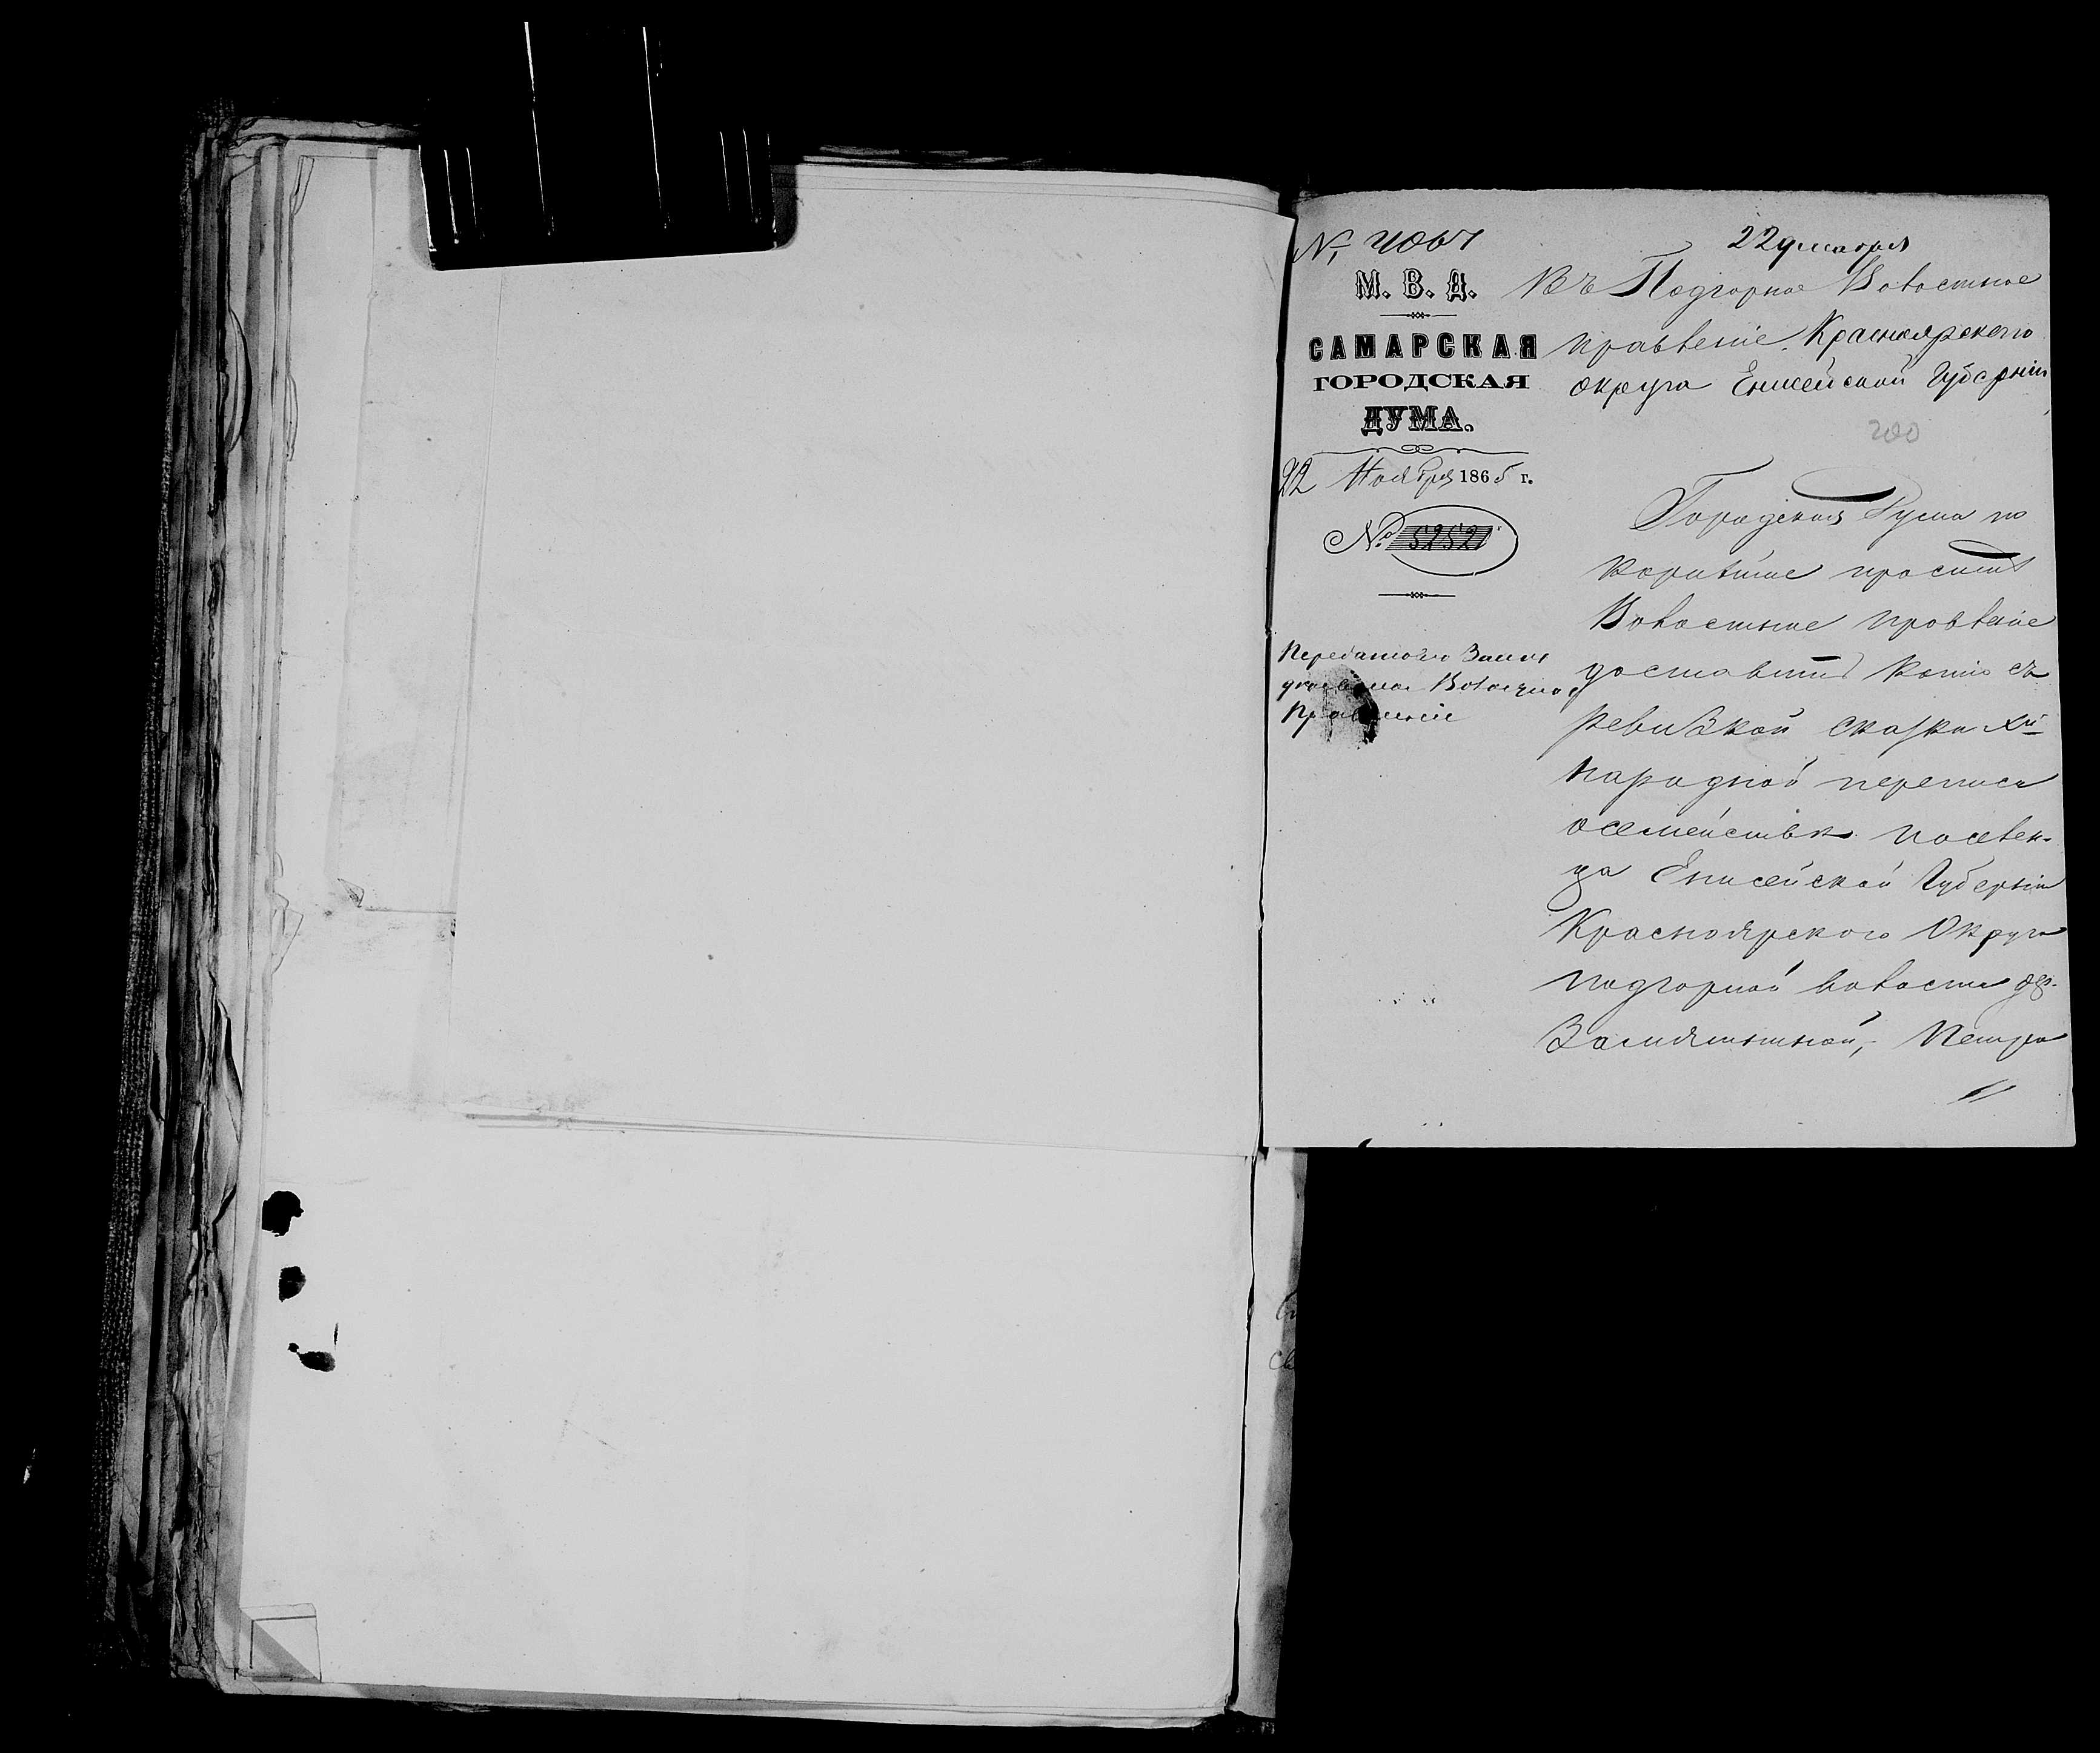 № 4067
22 декабря
М. В. Д.
САМАРСКАЯ
ГОРОДСКАЯ
ДУМА.
22 Ноября 1865 г.
№ 5252
Правленіе
Въ Подгорное Волостное
правленіе Красноярскаго
округа Енисейской Губерніи
200
Городская Дума по
корнѣйше проситъ
Волостное правленіе
доставить копію съ
ревизской сказки Xй
народной переписи
о семействѣ поселен-
ца Енисейской Губерніи
Красноярскаго Округа
подгорной волости дер.
Замятиной, Петра
Св